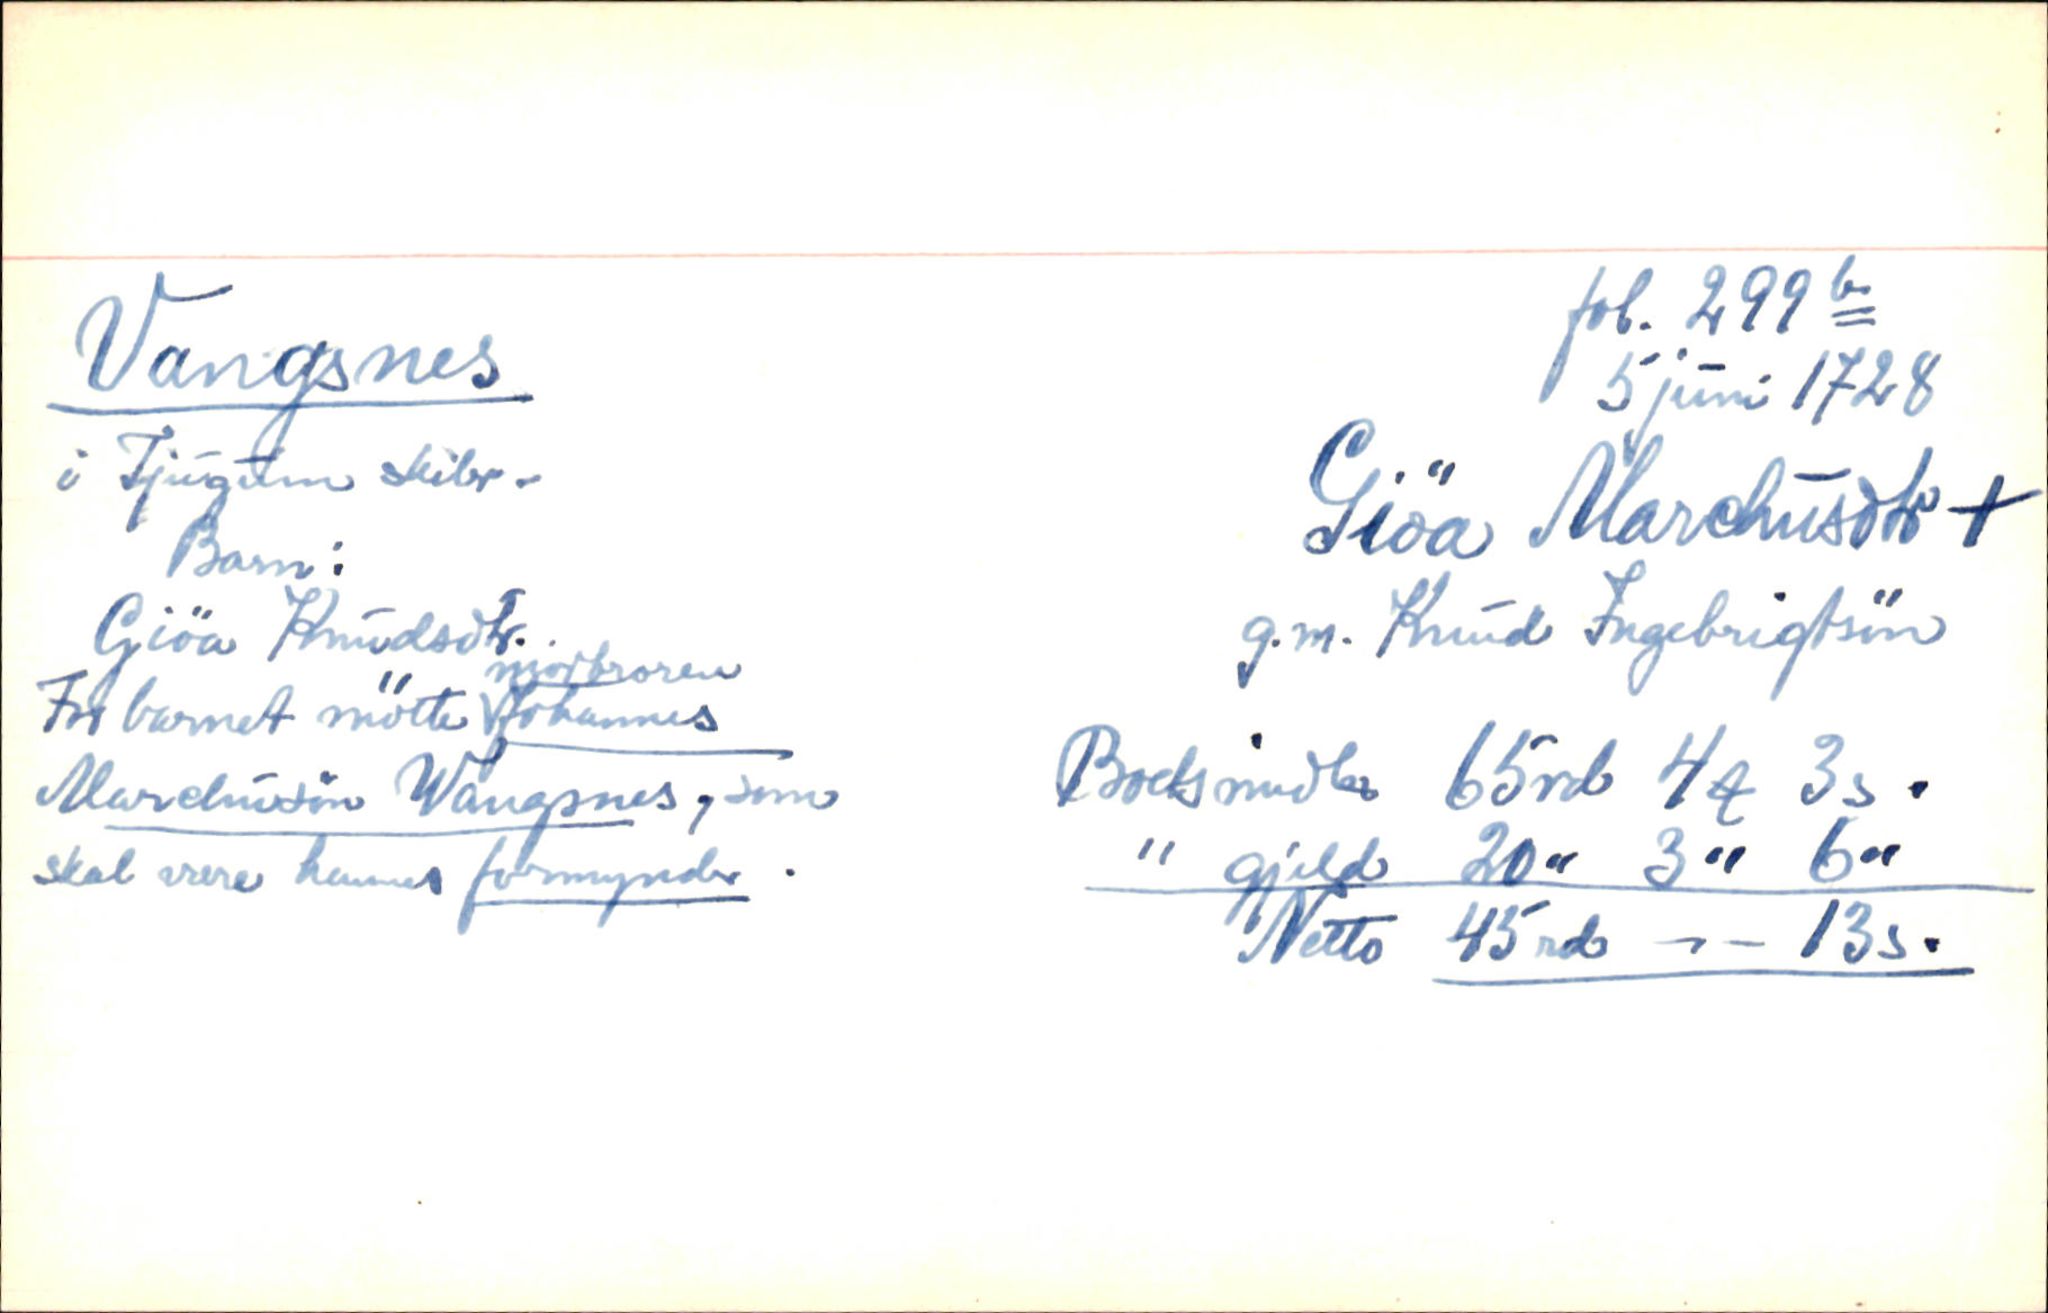 fol. 299 b.
5 juni 1728
Vangsnes
i Tjugum skibr.
Barn:
Giöa Knudsdtr.
For barnet mötte morbroren Johannes
Marchusön Wangsnes, som
skal vere hennes formynder.
Giöa Marchusdtr +
g. m. Knud Ingebrigtsön
Boets midler 65 rd 4 ꝗ 3 s.
" gjeld 20 " 3 " 6 "
Netto 45 rd -- 13 s.